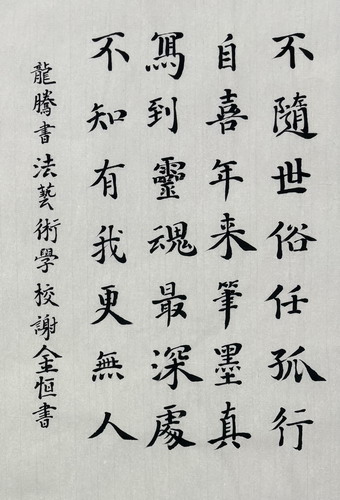 不隨世俗任孤行
自喜年来筆墨真
寫到靈魂最深處
不知有我更無人
龍騰書法藝術學校謝金恒書